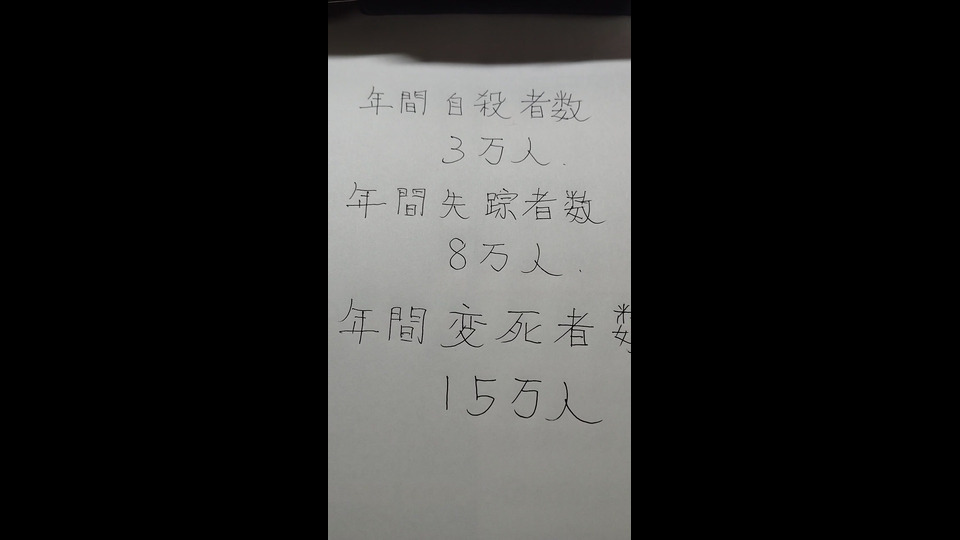 年間自殺者数
3万人.
年間失踪者数
8万人.
年間変死者数
15万人